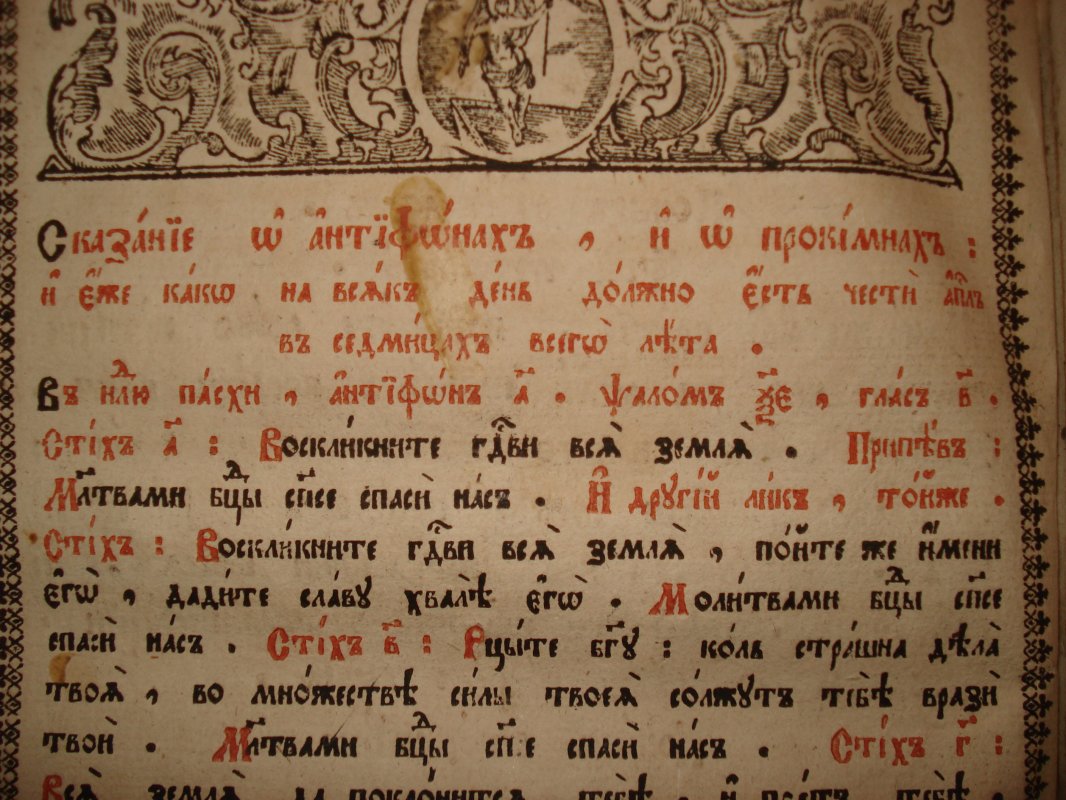 Сказа́нїе ѡ҆ а҆нтїфѡ́нахъ , и҆ ѡ҆ прокі́мнахъ :
и҆ є҆́же ка́кѡ на всѧ́къ де́нь до́лжно є҆́сть честѝ а҆пⷭ҇лъ
въ седми́цахъ всегѡ̀ лѣ́та .
Въ нⷣлю па́схи , а҆нтїфѡ́нъ а҃ . ѱало́мъ ѯ҃є , гла́съ в҃ .
Сті́хъ а҃ : Воскли́кните гдⷭ҇ви всѧ̀ землѧ̀ . Припѣ́въ :
Мл҃твами бцⷣы сп҃се спасѝ на́съ . И҆ другі́й ли́къ , то́йже .
Сті́хъ : Воскли́кните гдⷭ҇ви всѧ̀ землѧ̀ , по́йте же и҆́мени
є҆гѡ̀ , дади́те сла́ву хвалѣ̀ є҆гѡ̀ . Моли́твами бцⷣы сп҃се
спасѝ на́съ . Сті́хъ в҃ : Рцы́те бг҃у : ко́ль стра́шна дѣла̀
твоѧ̀ , во мно́жествѣ си́лы твоеѧ̀ со́лжутъ тебѣ̀ вразѝ
твоѝ . Мл҃твами бцⷣы сп҃се спасѝ на́съ . Сті́хъ г҃ :
Всѧ̀ землѧ̀ да поклони́тсѧ тебѣ̀ , и҆ пое́тъ тебѣ̀ ,